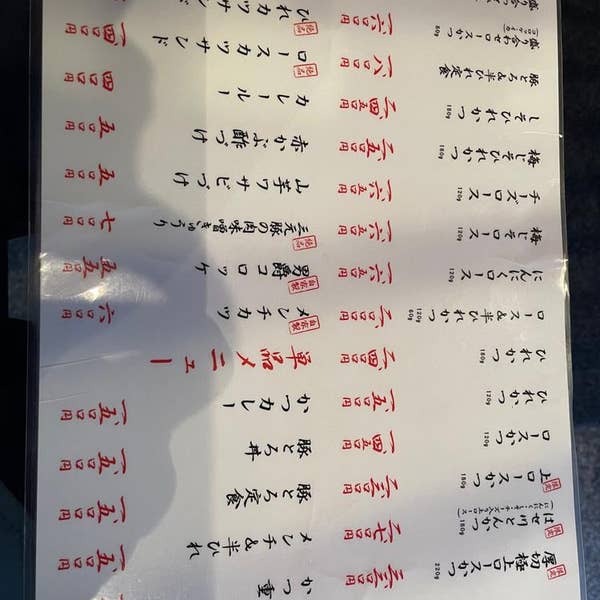 限定
厚切極上ロースかつ
220g
三、三〇〇円
限定
はせ川とんかつ
180g
二、七〇〇円
限定
上ロースかつ
180g
二、三〇〇円
ロースかつ
120g
一、四五〇円
ひれかつ
120g
一、五〇〇円
ひれかつ
180g
二、四〇〇円
ロース&半ひれかつ
120g 60g
にんにくロース
120g
一、六五〇円
梅しそロース
120g
一、六五〇円
チーズロース
120g
一、六五〇円
梅しそひれかつ
180g
二、五〇〇円
しそひれかつ
180g
二、四五〇円
豚とろ&半ひれ定食
一、八〇〇円
盛り合わせロースかつ
一、六〇〇円
かつ重
メンチ&半ひれ
一、五〇〇円
豚とろ定食
一、五〇〇円
豚とろ丼
一、五〇〇円
かつカレー
一、五〇〇円
単品メニュー
メンチカツ
自家製
六〇〇円
男爵コロッケ
自家製
五五〇円
三元豚の肉味噌きゅうり
絶品
七〇〇円
山芋ワサビづけ
五〇〇円
赤かぶ酢づけ
五〇〇円
カレールー
四〇〇円
ロースカツサンド
絶品
一、四〇〇円
ひれカツサンド
絶品